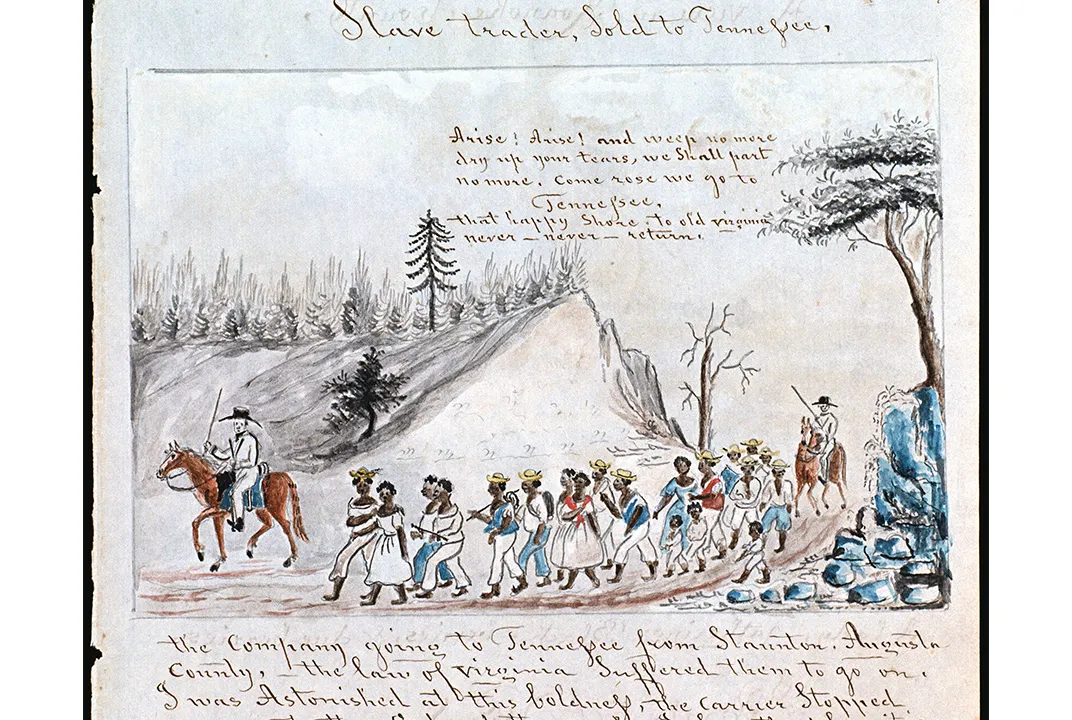 Slave trader, Sold to Tennessee,
Arise! Arise! and weep no more
dry up your tears, we Shall part
no more. Come rose we go to
Tennessee,
that happy Shore, to old virginia
never – never – return.
the Company going to Tennessee from Staunton, Augusta
County, – the law of virginia Suffered them to go on.
I was Astonished at this boldness, the carrier Stopped